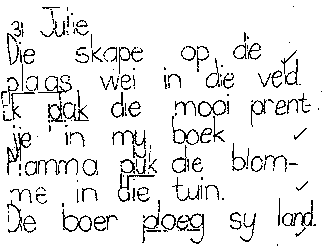 31 Julie
Die skape op die
plaas wei in die veld.
Ek plak die mooi prent
-jie in my boek
Mamma pluk die blom-
me in die tuin.
Die boer ploeg sy land.